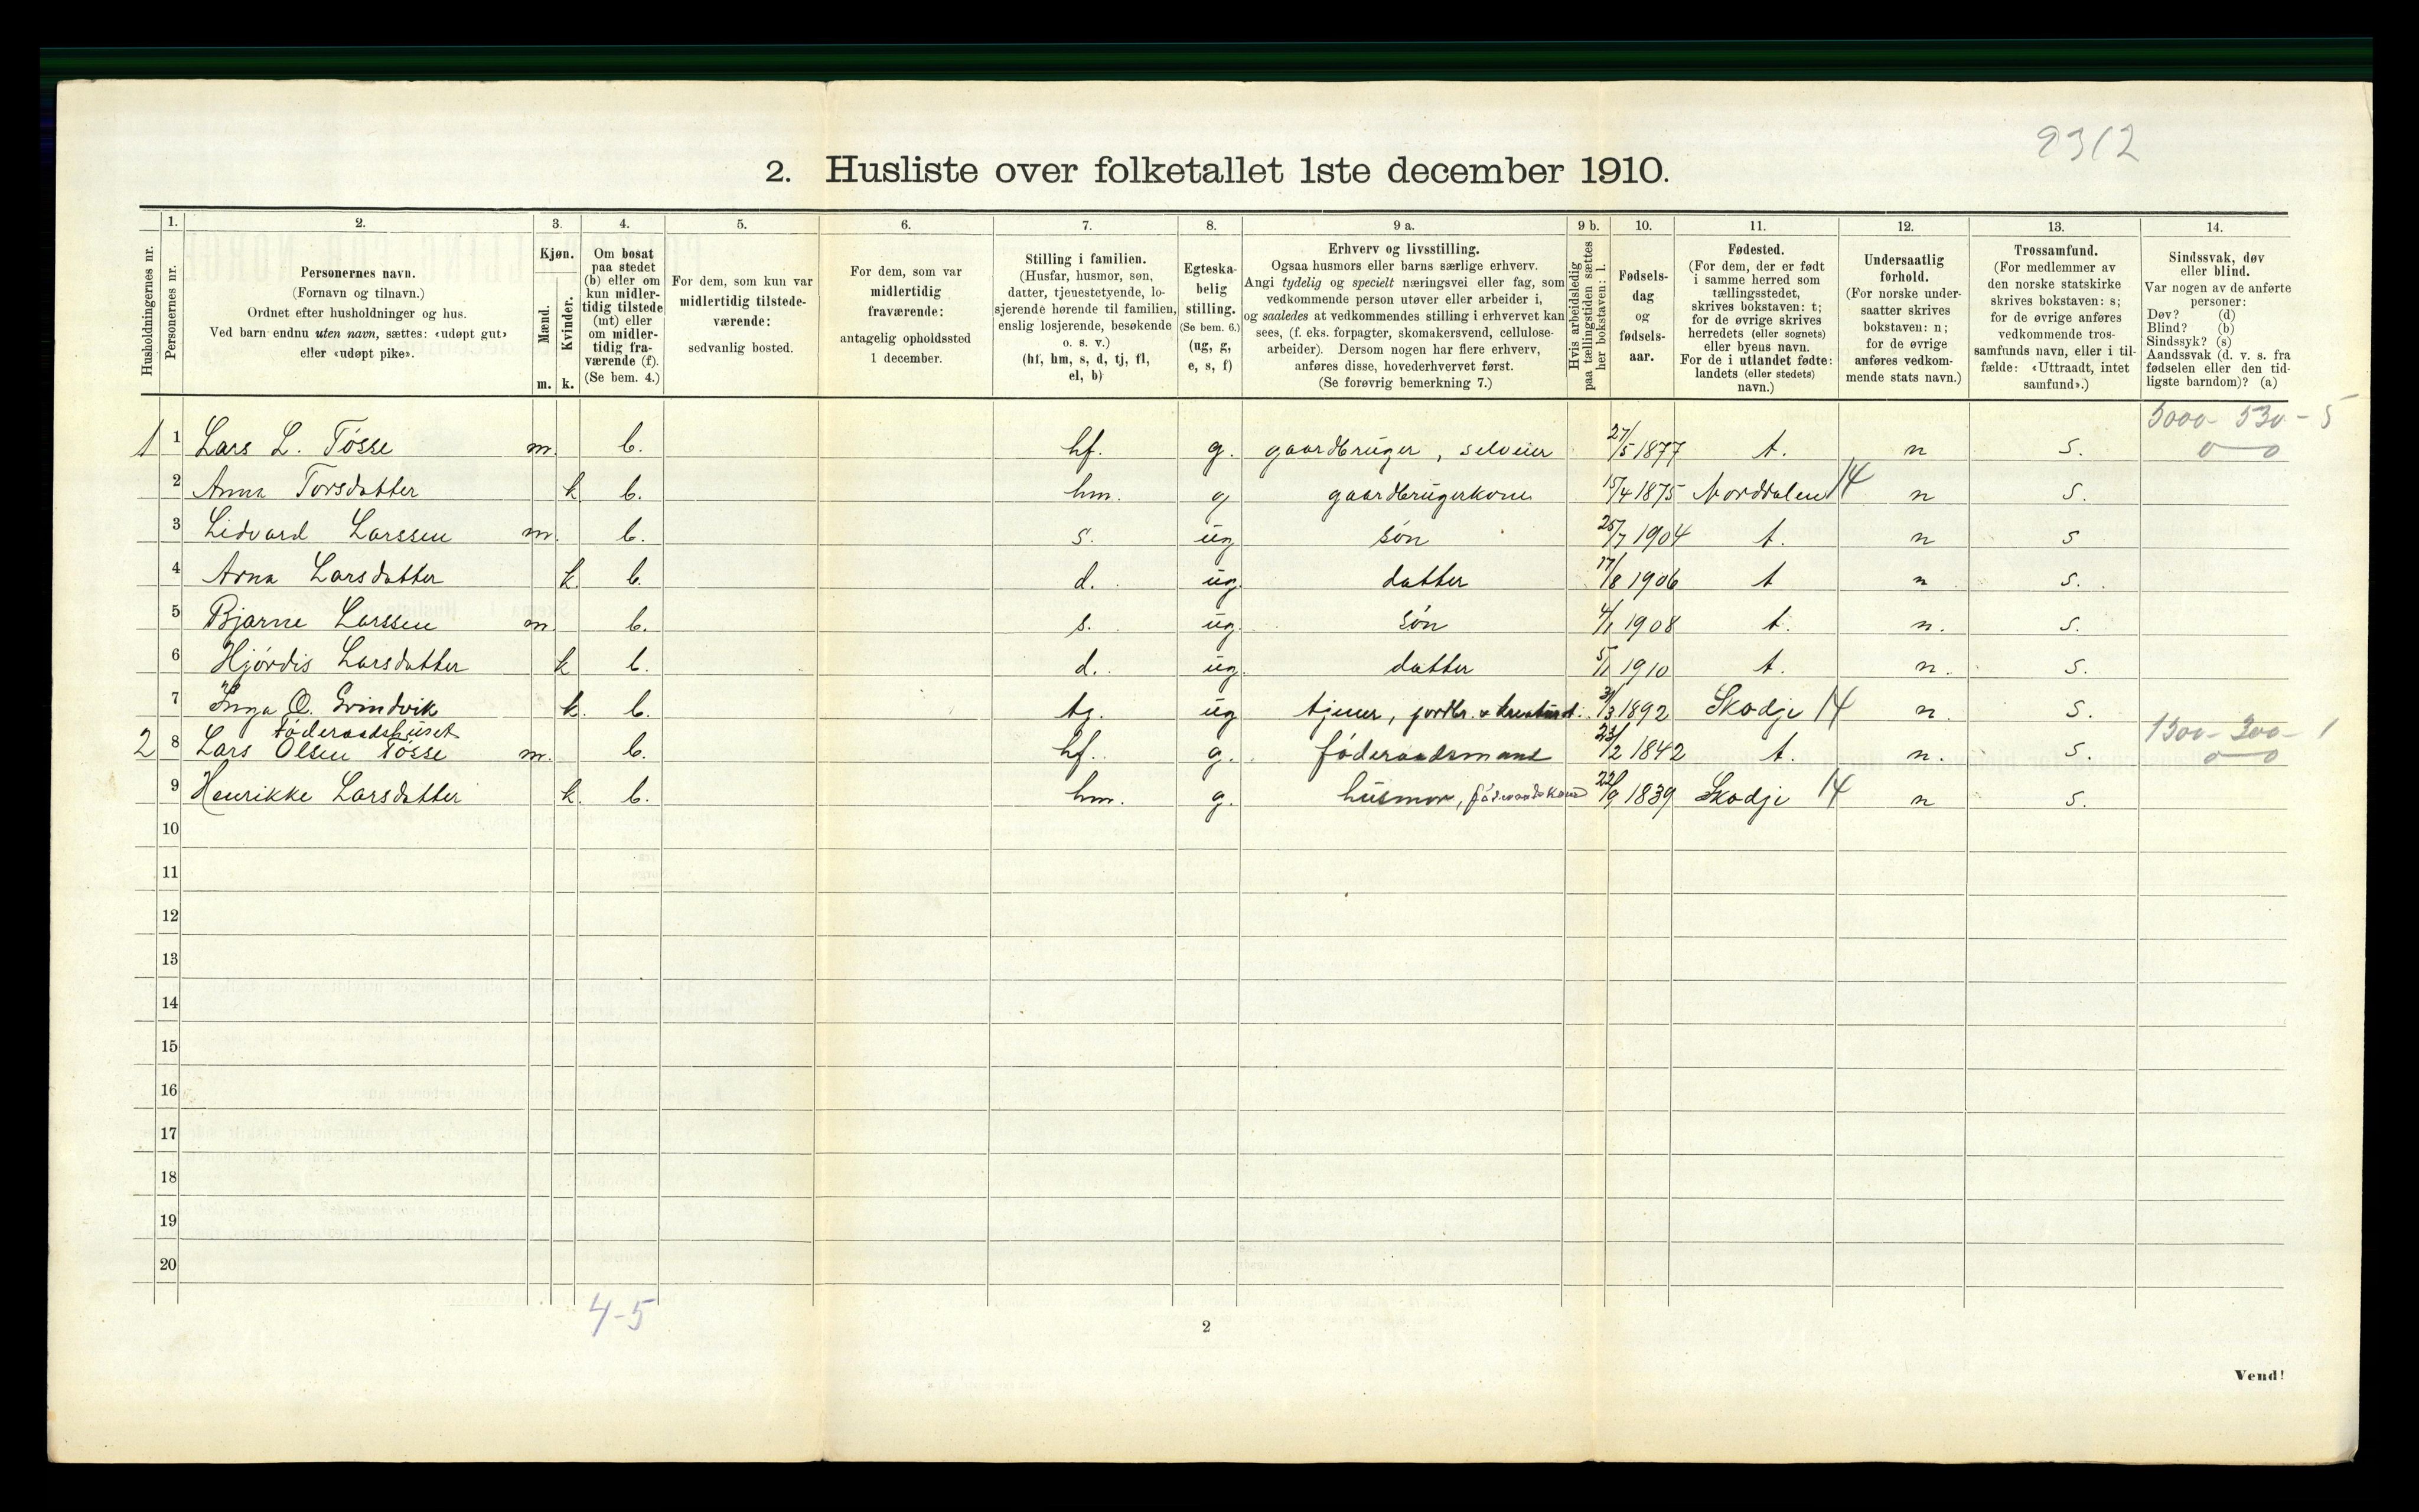 9312
2. Husliste over folketallet 1ste december 1910.
Husholdningernes nr.
1.
Personernes nr.
2.
Personernes navn.
(Fornavn og tilnavn.)
Ordnet efter husholdninger og hus.
Ved barn endnu uten navn, sættes: «udøpt gut»
eller «udøpt pike».
3.
Kjøn.
Mænd.
Kvinder.
m. k.
4.
Om bosat
paa stedet
(b) eller om
kun midler-
tidig tilstede
(mt) eller
om midler-
tidig fra-
værende (f).
(Se bem. 4.)
5.
For dem, som kun var
midlertidig tilstede-
værende:
sedvanlig bosted.
6.
For dem, som var
midlertidig
fraværende:
antagelig opholdssted
1 december.
7.
Stilling i familien.
(Husfar, husmor, søn,
datter, tjenestetyende, lo-
sjerende hørende til familien,
enslig losjerende, besøkende
o. s. v.)
(hf, hm, s, d, tj, fl,
el, b)
8.
Egteska-
belig
stilling.
(Se bem. 6.)
(ug, g,
e, s, f)
9 a.
Erhverv og livsstilling.
Ogsaa husmors eller barns særlige erhverv.
Angi tydelig og specielt næringsvei eller fag, som
vedkommende person utøver eller arbeider i,
og saaledes at vedkommendes stilling i erhvervet kan
sees, (f. eks. forpagter, skomakersvend, cellulose-
arbeider). Dersom nogen har flere erhverv,
anføres disse, hovederhvervet først.
(Se forøvrig bemerkning 7.)
9 b.
Hvis arbeidsledig
paa tællingstiden sættes
her bokstaven: l.
10.
Fødsels-
dag
og
fødsels-
aar.
11.
Fødested.
(For dem, der er født
i samme herred som
tællingsstedet,
skrives bokstaven: t;
for de øvrige skrives
herredets (eller sognets)
eller byens navn.
For de i utlandet fødte:
landets (eller stedets)
navn.)
12.
Undersaatlig
forhold.
(For norske under-
saatter skrives
bokstaven: n;
for de øvrige
anføres vedkom-
mende stats navn.)
13.
Trossamfund.
(For medlemmer av
den norske statskirke
skrives bokstaven: s;
for de øvrige anføres
vedkommende tros-
samfunds navn, eller i til-
fælde: «Uttraadt, intet
samfund».)
14.
Sindssvak, døv
eller blind.
Var nogen av de anførte
personer:
Døv? (d)
Blind? (b)
Sindssyk? (s)
Aandssvak (d. v. s. fra
fødselen eller den tid-
ligste barndom)? (a)
5000 - 530 - 5
1 1 Lars L. Tøsse m. b. hf. g. gaardbruger, selveier 27/5 1877 t. n s. 0—0
2 Anna Torsdatter k b. hm. g gaardbrugerkone 15/4 1875 Norddalen 14 n s.
3 Lidvard Larssen m. b. s. ug søn 25/7 1904 t. n s
4 Arna Larsdatter k b. d. ug. datter 17/8 1906 t n s.
5 Bjarne Larssen m b. s. ug. søn 4/1 1908 t. n. s.
6 Hjørdis Larsdatter k b. d. ug. datter 5/11 1910 t. n. s.
7 Inga O. Grindvik k. b. tj. ug tjener, jordbr. & kreaturst. 31/3 1892 Skodje 14 n. s.
Føderaadshuset 1300 - 200 - 1
2 8 Lars Olsen Tøsse m. b. hf. g. føderaadsmand 23/2 1842 t. n. s. 0—0
9 Henrikke Larsdatter k. b. hm. g. husmor, føderaadskone 22/9 1839 Skodje 14 n s.
10
11
12
13
14
15
16
17
18
19
20
4-5
2
Vend!